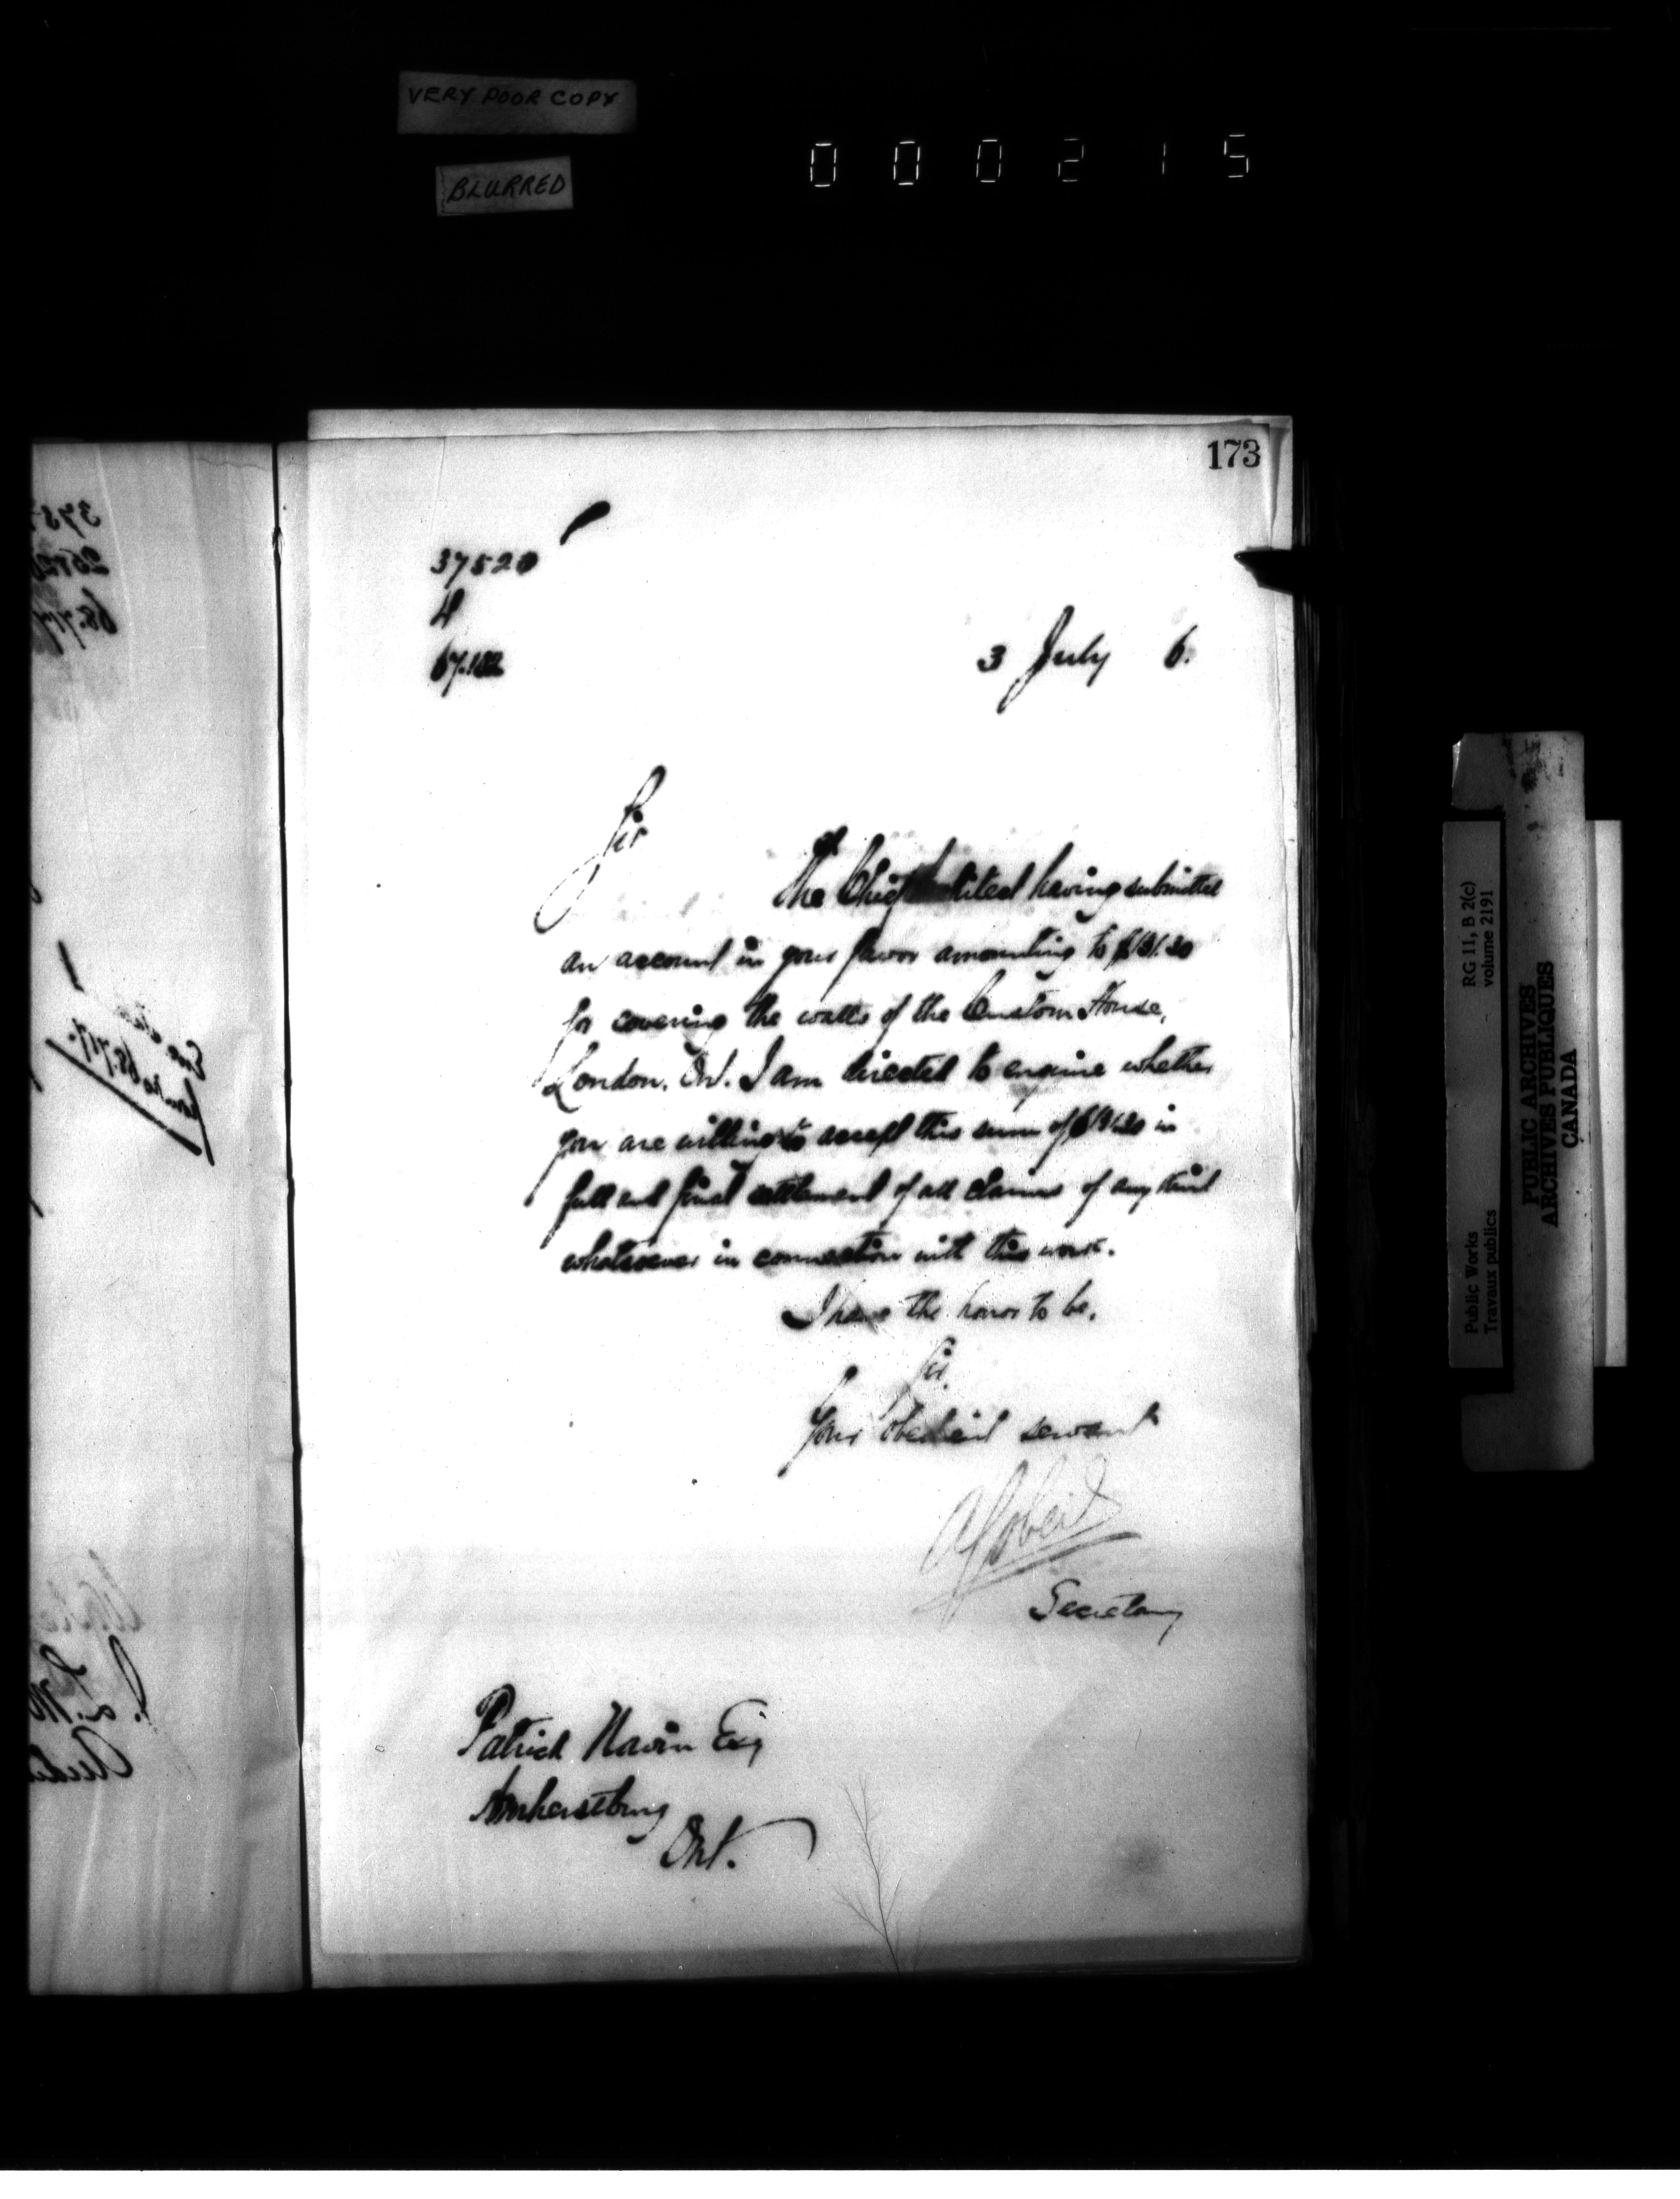 VERY POOR COPY
BLURRED
000215
173
37520
3 July 6.
Sir
The Chief Architect having submitted
an account in your favor amounting to $131.20
for covering the walls of the Custom House,
London, Ont. I am directed to enquire whether
you are willing to accept this sum of $131.20 in
full and final settlement of all claims of any kind
whatsoever in connection with this work.
I have the honor to be,
Sir,
Your obedient servant
Secretary
Patrick Navin Esq
Amherstburg
Ont.
RG 11, B 2(c)
volume 2191
Public Works
Travaux publics
PUBLIC ARCHIVES
ARCHIVES PUBLIQUES
CANADA